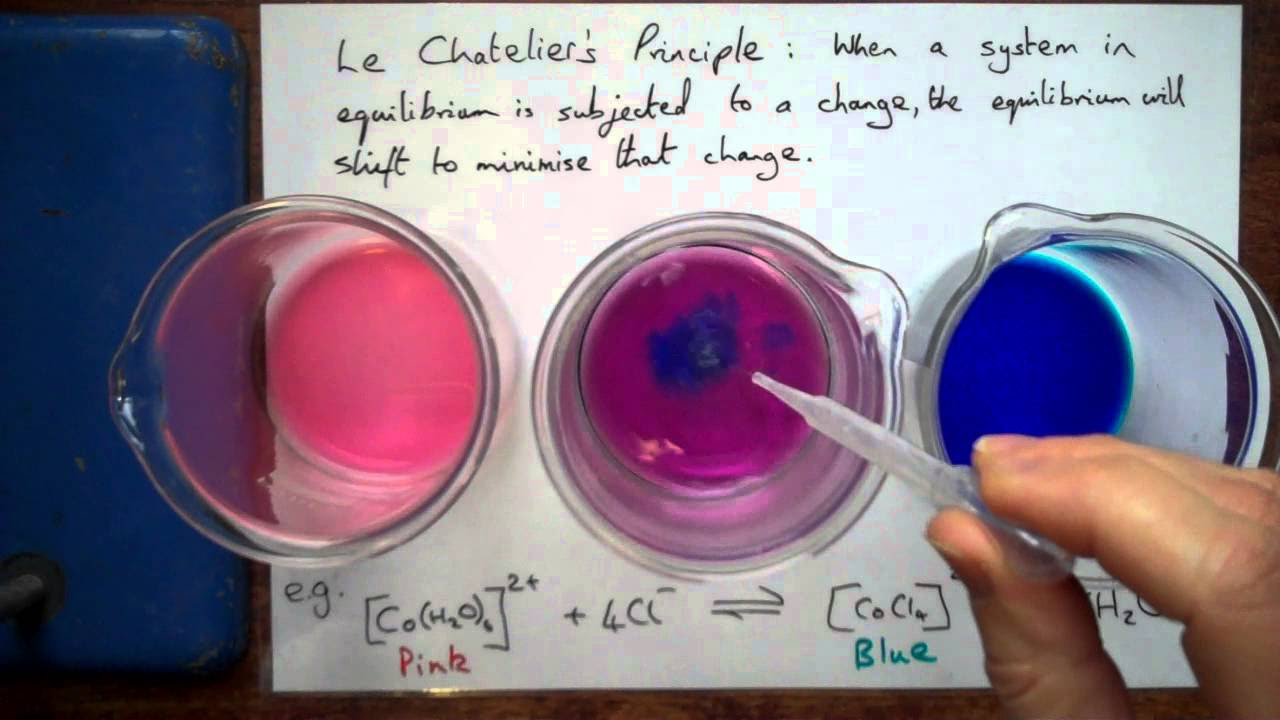 Le Chatelier's Principle : When a system in
equilibrium is subjected to a change, the equilibrium will
shift to minimise that change.
e.g. [Co(H₂O)₆]²⁺ + 4Cl⁻ ⇌ [CoCl₄] H₂O
Pink Blue